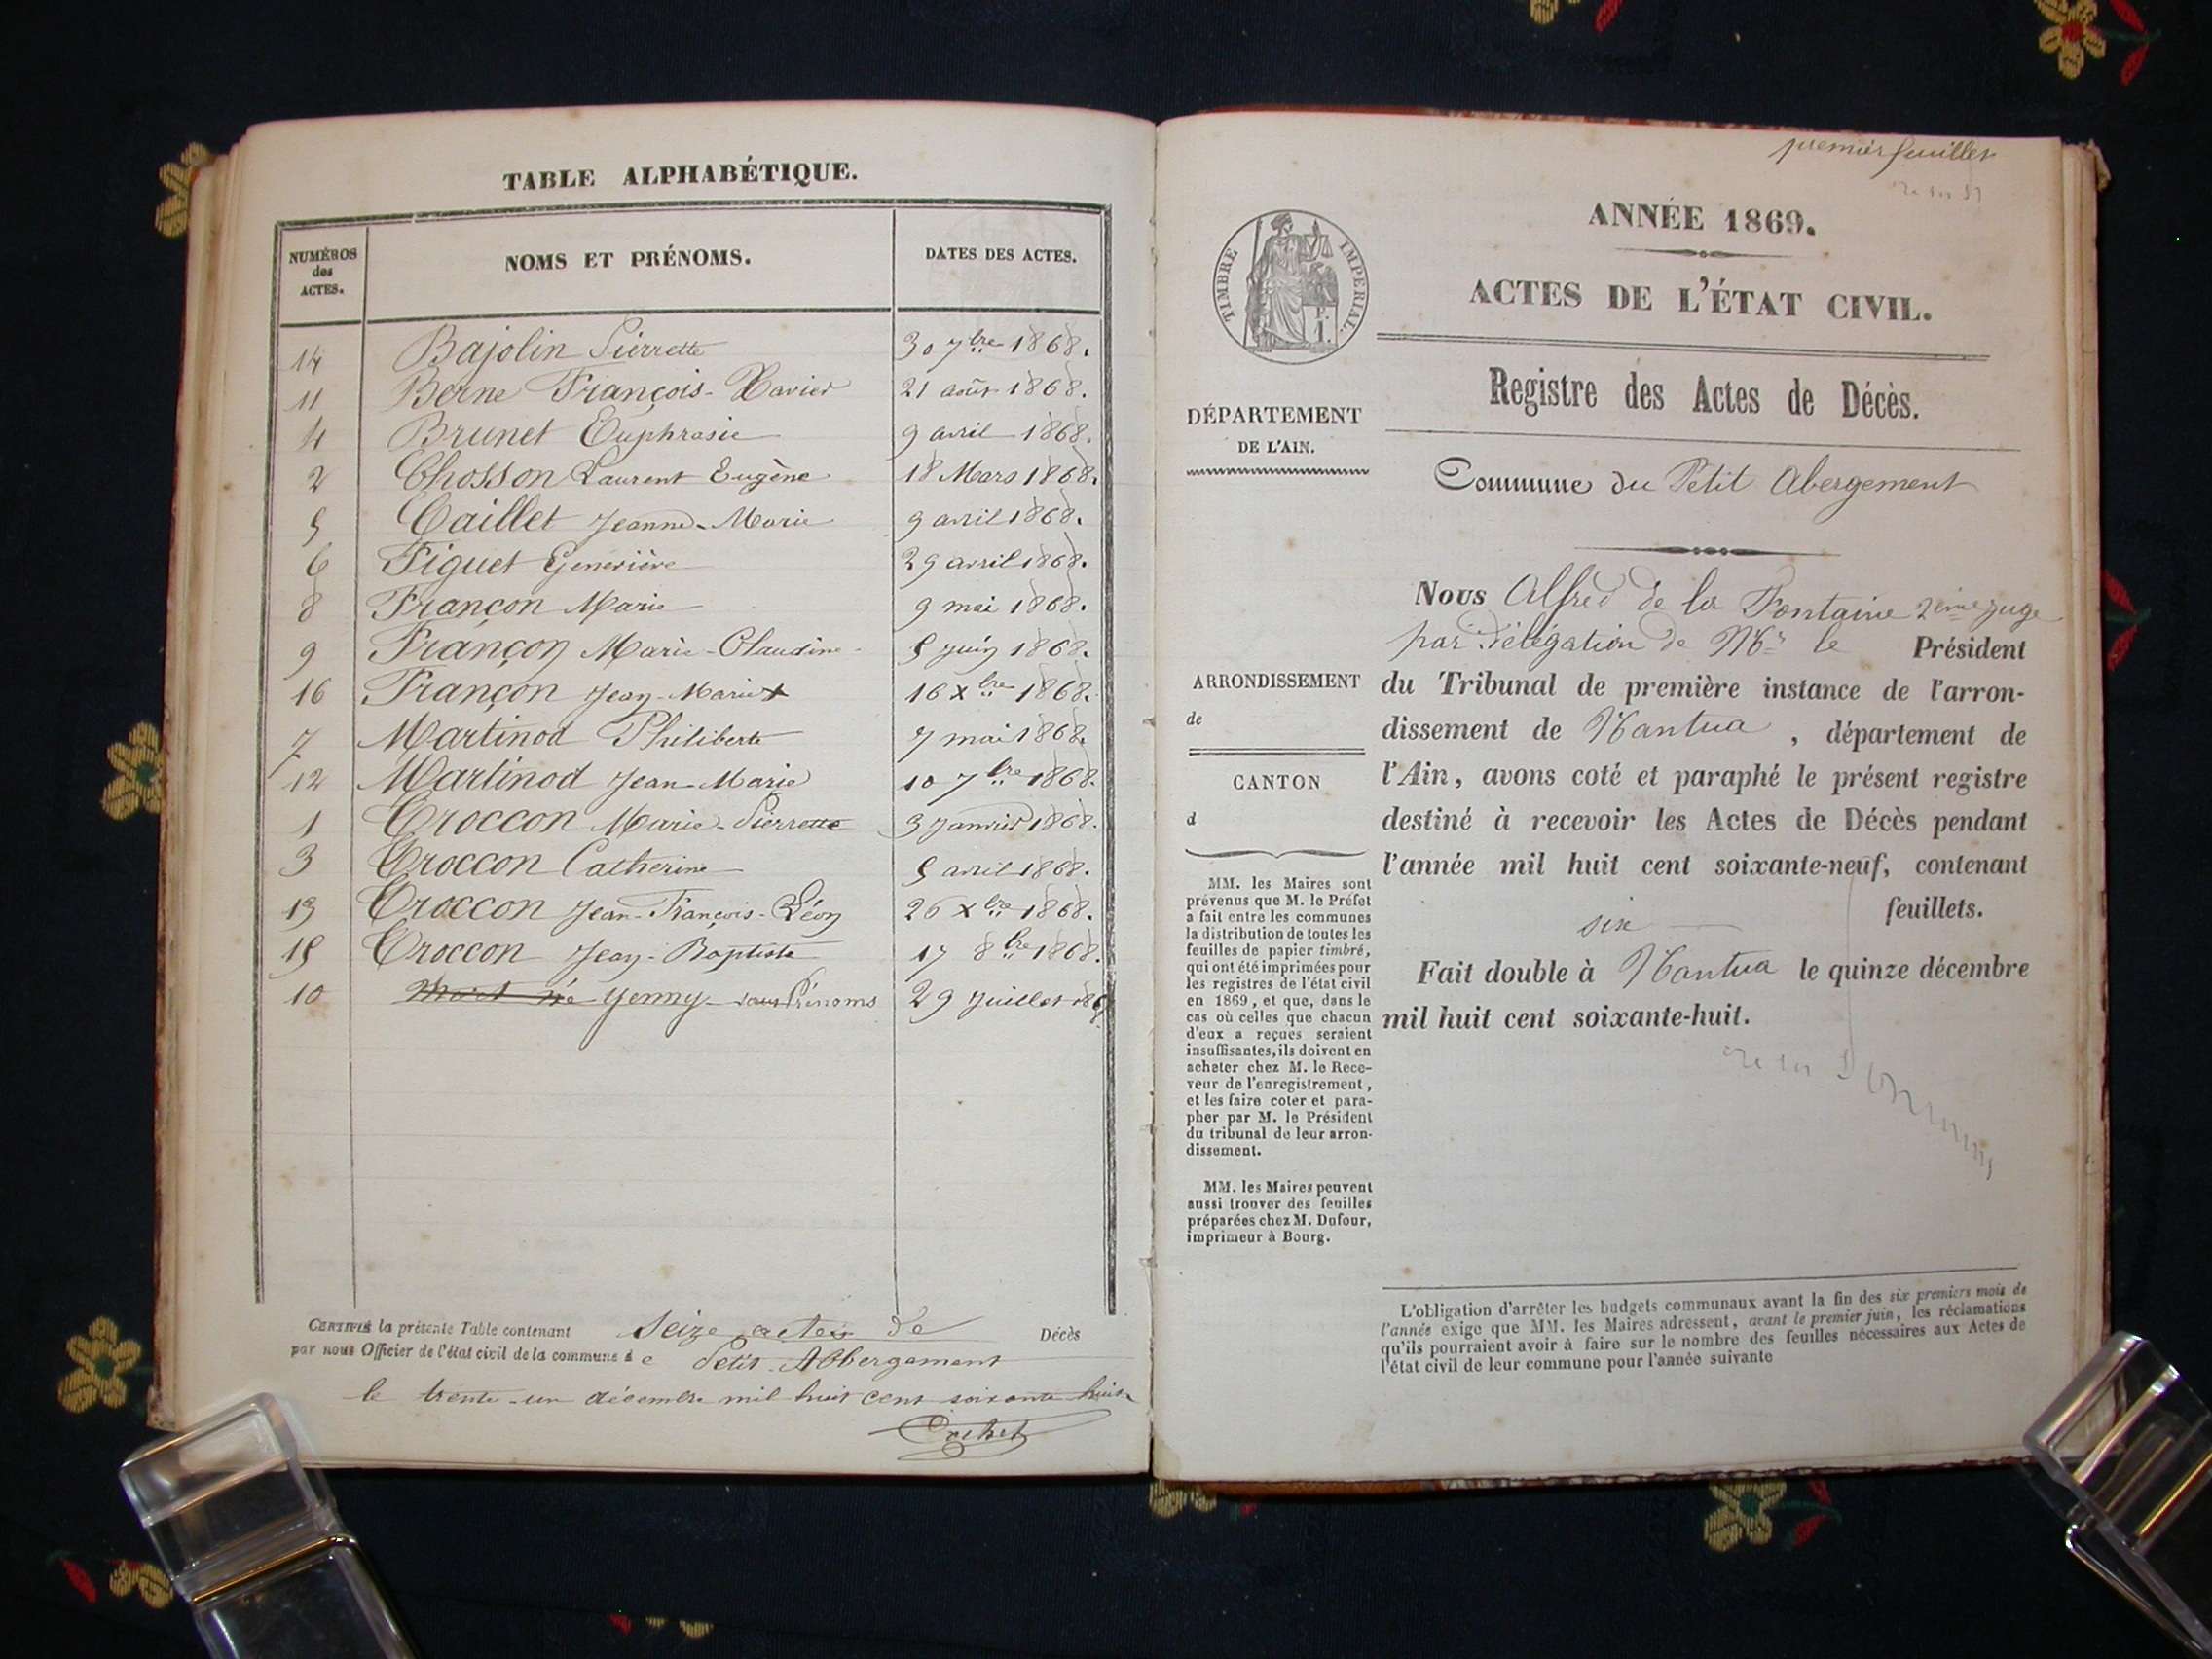 TABLE ALPHABÉTIQUE.
NUMÉROS
des
ACTES.
NOMS ET PRÉNOMS.
DATES DES ACTES.
14 Bajolin Pierrette 30 7bre 1868.
11 Berne François-Xavier 21 août 1868.
4 Brunet Euphrasie 9 avril 1868.
2 Chosson Laurent Eugène 18 Mars 1868.
5 Caillet Jeanne-Marie 9 avril 1868.
6 Figuet Geneviève 29 avril 1868.
8 Françon Marie 9 mai 1868.
9 Françon Marie-Claudine 5 juin 1868.
16 Françon Jean-Marie 16 xbre 1868.
7 Martinod Philiberte 7 mai 1868.
12 Martinod Jean-Marie 10 7bre 1868.
1 Croccon Marie-Pierrette 3 Janvier 1868.
3 Croccon Catherine 5 avril 1868.
13 Croccon Jean-François-Léon 26 xbre 1868.
15 Croccon Jean-Baptiste 17 8bre 1868.
10 Mort né Yenny sans Prénoms 29 Juillet
CERTIFIÉ la présente Table contenant seize actes de Décès
par nous Officier de l'état civil de la commune de Petit-Abbergement
le trente-un décembre mil huit cent soixante huit
premier feuillet
ANNÉE 1869.
ACTES DE L'ÉTAT CIVIL.
TIMBRE IMPÉRIAL.
Registre des Actes de Décès.
DÉPARTEMENT
DE L'AIN.
Commune du Petit Abergement
Nous Alfred de la Fontaine 2ème juge
par délégation de Mr le Président
ARRONDISSEMENT
de
CANTON
d
du Tribunal de première instance de l'arron-
dissement de Nantua, département de
l'Ain, avons coté et paraphé le présent registre
destiné à recevoir les Actes de Décès pendant
l'année mil huit cent soixante-neuf, contenant
six feuillets.
Fait double à Nantua le quinze décembre
mil huit cent soixante-huit.
MM. les Maires sont
prévenus que M. le Préfet
a fait entre les communes
la distribution de toutes les
feuilles de papier timbré,
qui ont été imprimées pour
les registres de l'état civil
en 1869, et que, dans le
cas où celles que chacun
d'eux a reçues seraient
insuffisantes, ils doivent en
acheter chez M. le Rece-
veur de l'enregistrement,
et les faire coter et para-
pher par M. le Président
du tribunal de leur arron-
dissement.
MM. les Maires peuvent
aussi trouver des feuilles
préparées chez M. Dufour,
imprimeur à Bourg.
L'obligation d'arrêter les budgets communaux avant la fin des six premiers mois de
l'année exige que MM. les Maires adressent, avant le premier juin, les réclamations
qu'ils pourraient avoir à faire sur le nombre des feuilles nécessaires aux Actes de
l'état civil de leur commune pour l'année suivante